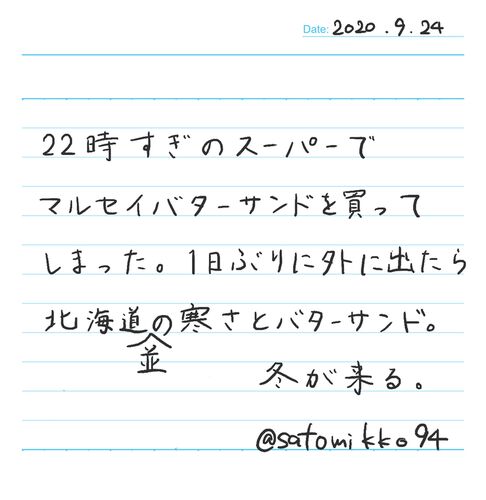 Date: 2020.9.24
22時すぎのスーパーで
マルセイバターサンドを買って
しまった。1日ぶりに外に出たら
北海道並の寒さとバターサンド。
冬が来る。
@satomikko94